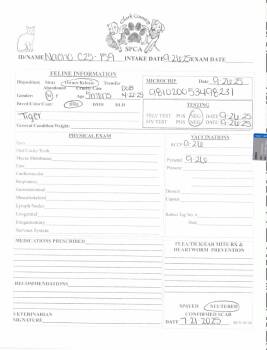 Clark County
SPCA
ID/NAME Nacho C25-159 INTAKE DATE 9-26-25 EXAM DATE
FELINE INFORMATION
Disposition: Stray Owner Release Transfer
Abandoned Cruelty Case DOB
Gender: M F Age 5 mos 4-22-25
Breed/Color/Coat: DSH DMH DLH
Tiger
General Condition/Weight:
MICROCHIP Date 9-26-25
981020053498231
TESTING
FELV TEST POS NEG DATE 9-26-25
FIV TEST POS NEG DATE 9-26-25
PHYSICAL EXAM
Eyes
Oral Cavity/Teeth
Mucus Membranes
Ears
Cardiovascular
Respiratory
Gastrointestinal
Musculoskeletal
Lymph Nodes
Urogenital
Integumentary
Nervous System
VACCINATIONS
RCCP 9-26
Pyrantel 9-26
Pyrantel
Rabies Tag No.#
MEDICATIONS PRESCRIBED
FLEA/TICK/EAR MITE RX &
HEARTWORM PREVENTION
RECOMMENDATIONS
VETERINARIAN
SIGNATURE
SPAYED NEUTERED
CONFIRMED SCAR
DATE 7-21-2025